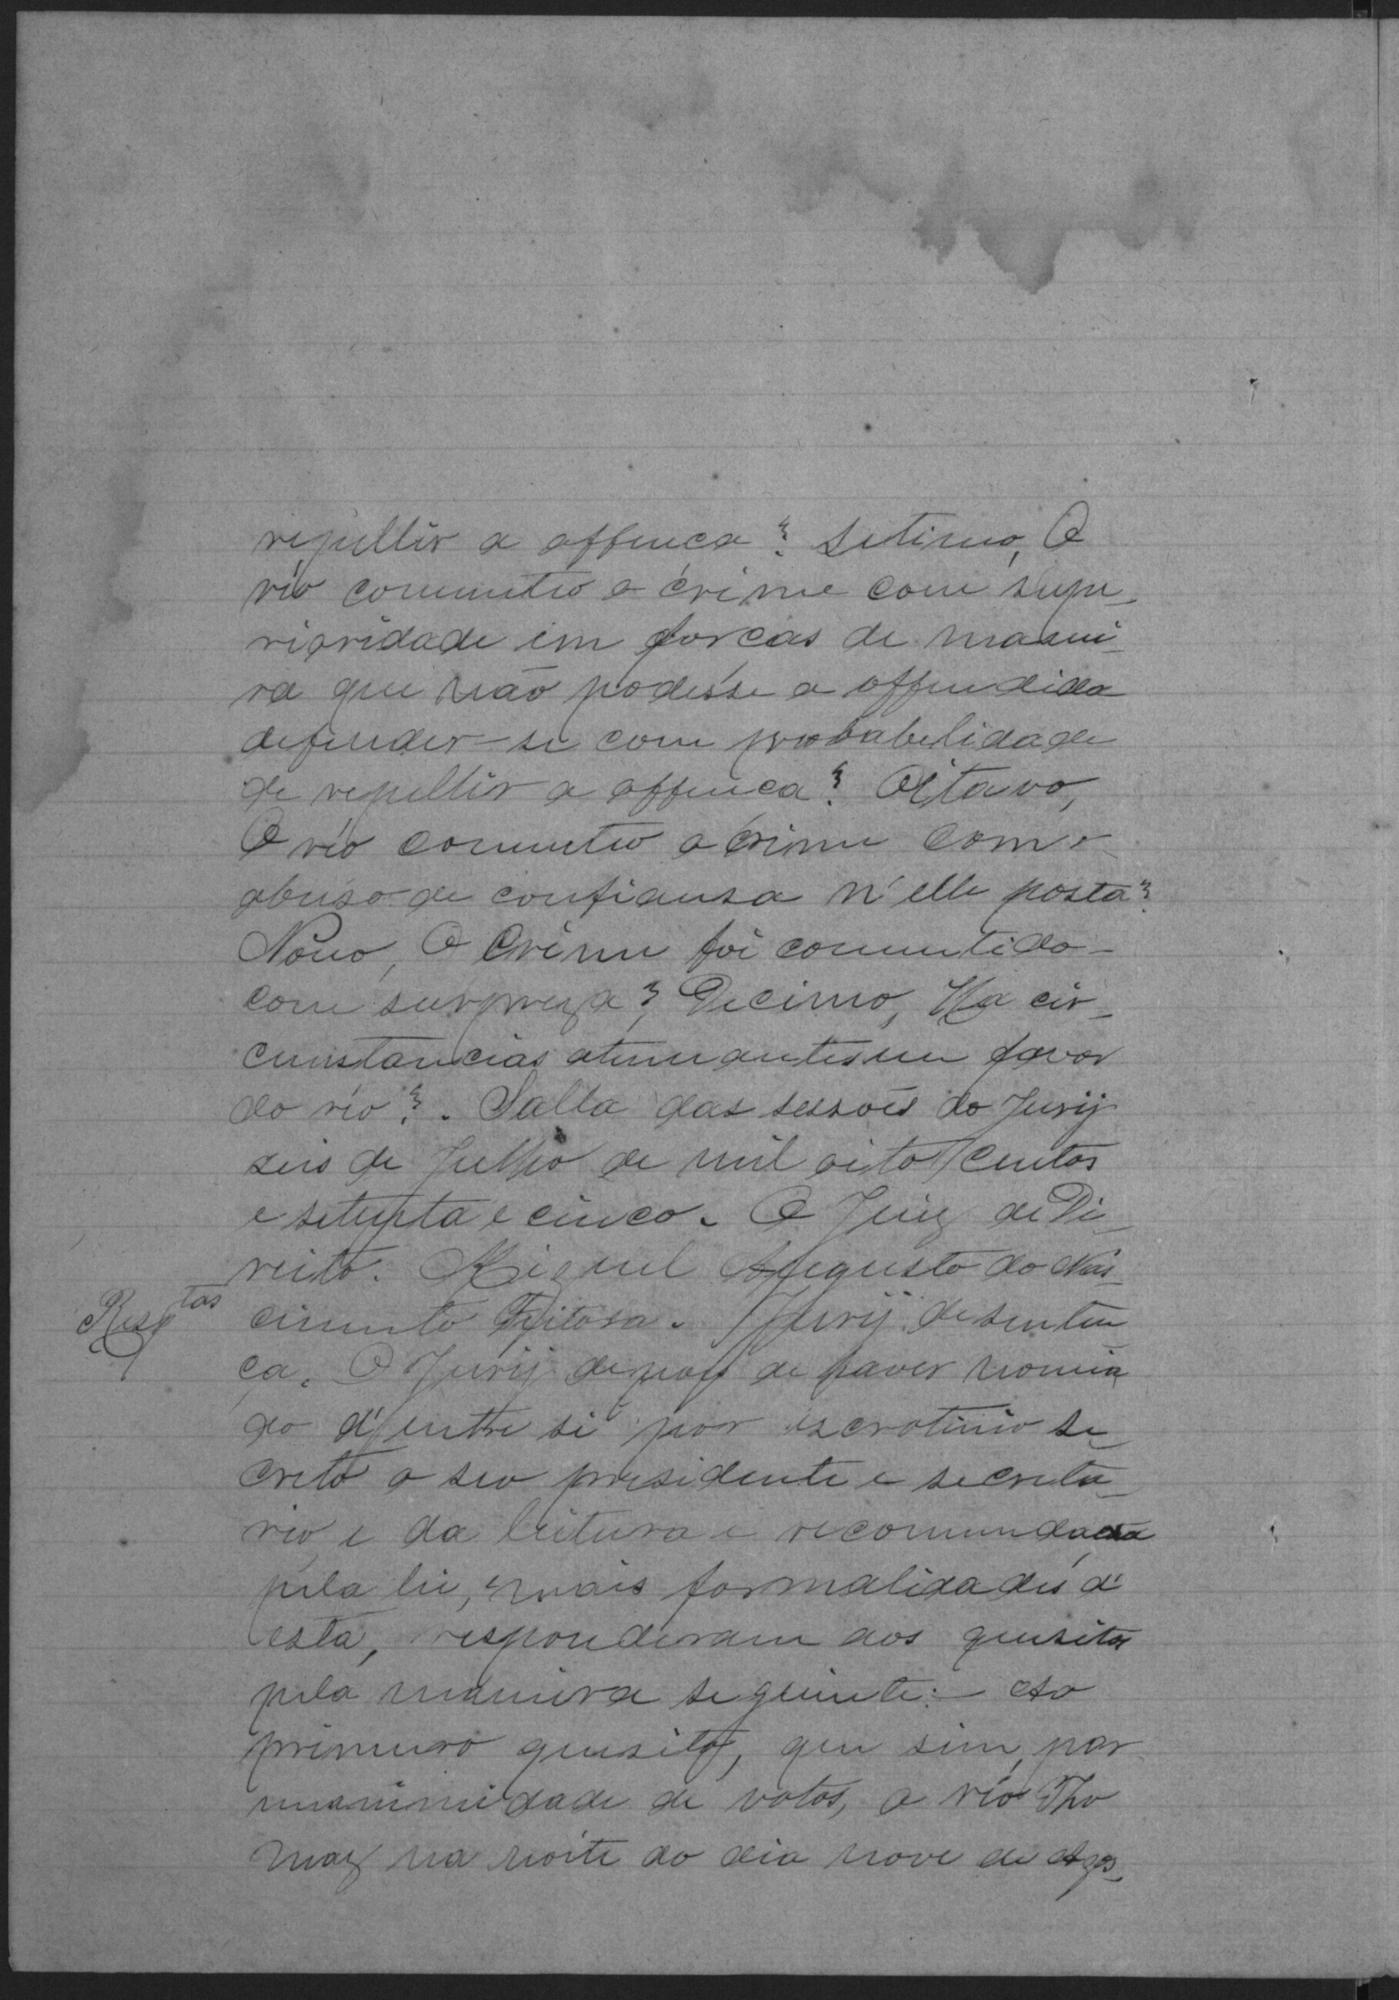 repellir a offenca? Setimo, O
réo commetteo o crime com supe-
rioridade em forcas de manei-
ra que não podésse a offendida
defender-se com probabelidade
de repellir a offenca? Oitavo,
O réo commeteo o crime com o
abuso de confiansa n'elle posta?
Nono, O Crime foi commetido
com surpreza? Decimo, Ha cir-
cunstancias atenuantes em favor
do réo?. Salla das sessoés do Jurij
seis de Julho de mil oito centos
e setenta e cinco. O Juiz de Di-
reito. Miguel Augusto do Nas-
Resp.tas
cimento Feitosa. Jurij de senten
ça. O Jurij depois de haver nomia
do d'entre si por escrotinio se-
creto o seo presidente e secreta-
rio e da leitura e recomendada
pela lei, e mais formalidades d'
esta, responderam aos quisitos
pela maneira seguinte:- Ao
primeiro quisito, que sim, por
unanimidade de votos, o réo Tho
maz na noite do dia nove de Agos-